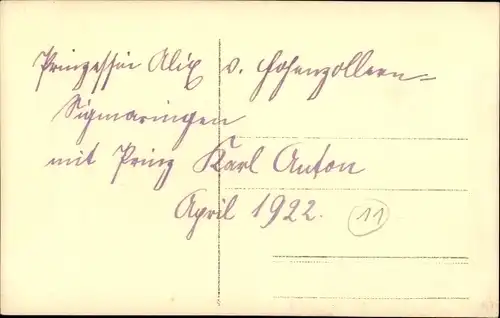 Prinzessin Alix v. Hohenzollern=
Sigmaringen
mit Prinz Karl Anton
April 1922.
11